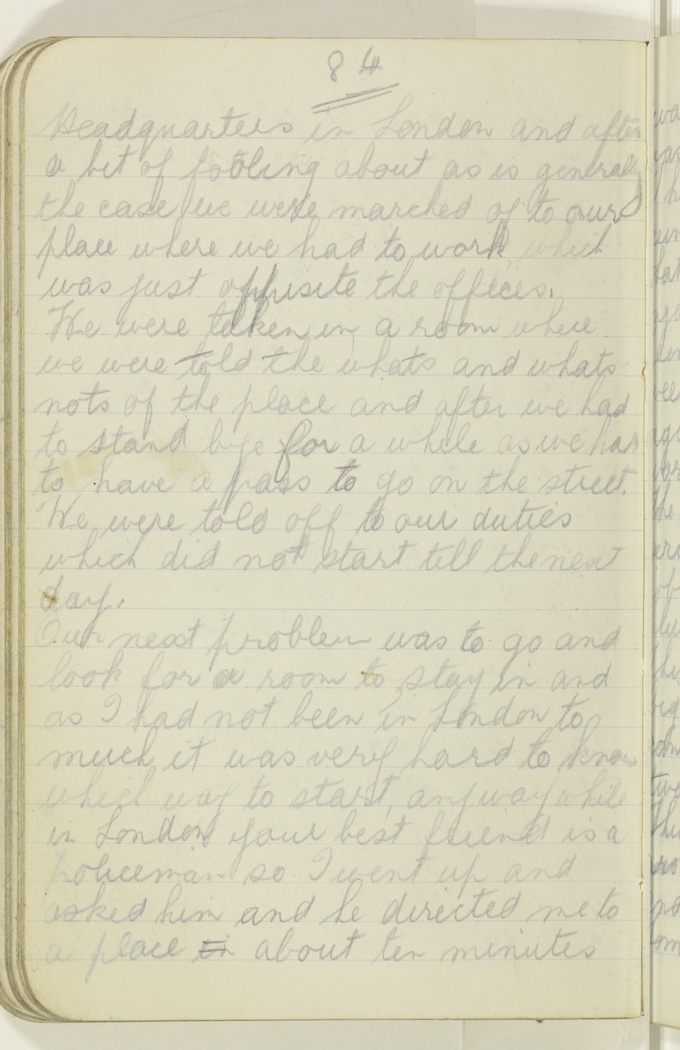 84
Headquarters in London and after
a bit of fooling about as is generally
the case we were marched of to our
place where we had to work which
was just oppisite the offices.
We were taken in a room where
we were told the whats and whats
nots of the place and after we had
to stand bye for a while as we had
to have a pass to go on the street.
We were told off to our duties
which did not start till the next
day.
Our next problem was to go and
look for a room to stay in and
as I had not been in London to
much it was very hard to know
which way to start, anyway while
in London your best friend is a
policeman so I went up and
asked him and he directed me to
a place in about ten minutes